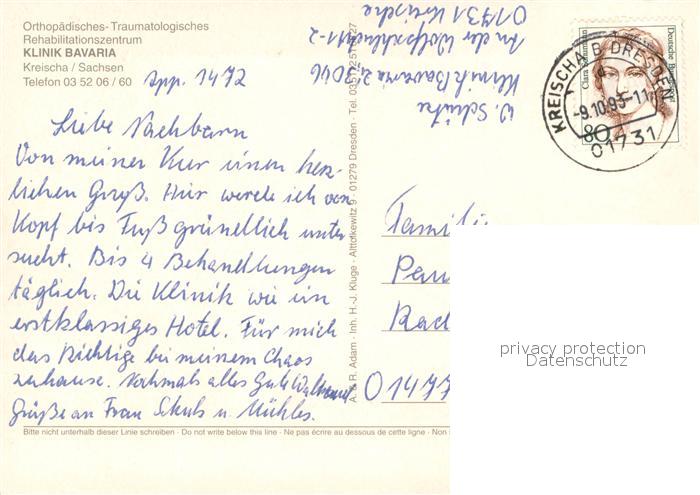 Orthopädisches-Traumatologisches
Rehabilitationszentrum
KLINIK BAVARIA
Kreischa / Sachsen
Telefon 03 52 06 / 60
App. 1472
Liebe Nachbarn
Von meiner Kur einen herz-
lichen Gruß. Hier werde ich von
Kopf bis Fuß gründlich unter
sucht. Bis 4 Behandlungen
täglich. Die Klinik wie ein
erstklassiges Hotel. Für mich
das Richtige bei meinem Chaos
zuhause. Nochmals alles Gute
Grüße an Frau u.
Bitte nicht unterhalb dieser Linie schreiben · Do not write below this line · Ne pas écrire au dessous de cette ligne · Non
A. & R. Adam · Inh. H.-J. Kluge · Alttolkewitz 9 · 01279 Dresden · Tel.
W. Schütze
Klinik Bavaria
An der Wolfsschlucht 1-2
01731 Kreischa
Clara Schumann
Deutsche Bundespost
80
KREISCHA B DRESDEN
-9.10.95-11
01731
Familie
Pau
Rad
01477
privacy protection
Datenschutz